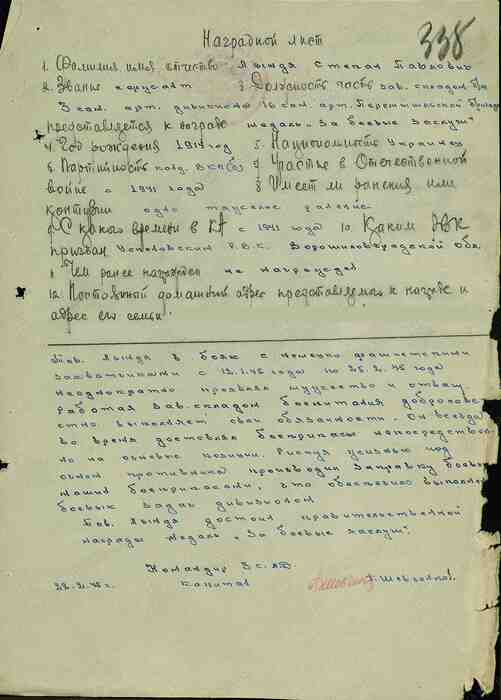 338
Наградной лист
1. Фамилия имя отчество Лында Степан Павлович
2. Звание сержант 3. Должность часть зав. складом б/п
3 сам. арт. дивизиона 16 сам. арт. Перемышльской бригады
представляется к награде медаль „За боевые заслуги"
4. Год рождения 1914 год 5. Национальность Украинец
6. Партийность канд. ВКП(б) 7. Участие в Отечественной
войне с 1941 года 8. Имеет ли ранения или
контузии одно тяжелое ранение
9. С какого времени в КА с 1941 года 10. Каким РВК
призван Успенским Р.В.К. Ворошиловградской обл.
11. Чем ранее награжден не награждал
12. Постоянный домашний адрес представляемого к награде и
адрес его семьи.
Тов. Лында в боях с немецко фашистскими
захватчиками с 12.1.45 года по 25.2.45 года
неоднократно проявлял мужество и отваг.
Работая зав. складом боепитания добросове-
стно выполняет свои обязанности. Он всегда
во время доставлял боеприпасы непосредствен
но на огневые позиции. Рискуя жизнью под
огнем противника производил заправку боевых
машин боеприпасами, это обеспечило выполнен
боевых задач дивизиона
Тов. Лында достоин правительственной
награды медаль „За боевые заслуги".
Командир 3 с.а.д.
28.2.45 г. Капитан Шевченко